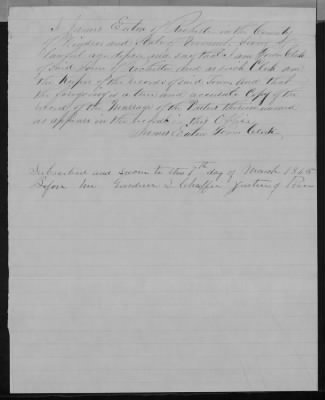 I James Eaton of Rochester in the County
of Windsor and State of Vermont being of
lawful age depose and say that I am Town Clerk
of said Town of Rochester and as such Clerk am
the keeper of the records of said Town and that
the foregoing is a true and accurate Copy of the
record of the Marriage of the Parties therein named
as appears in the records in this Office
James Eaton Town Clerk
Subscribed and sworn to this 7th day of March 1865
Before me Gardner S Chaffee Justice of Peace